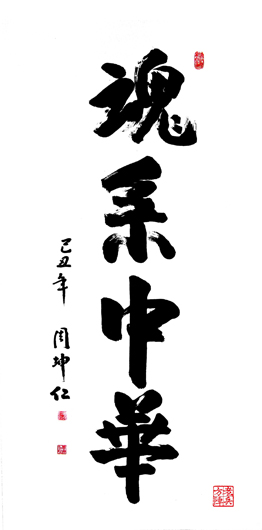 魂系中華
己丑年 周坤仁